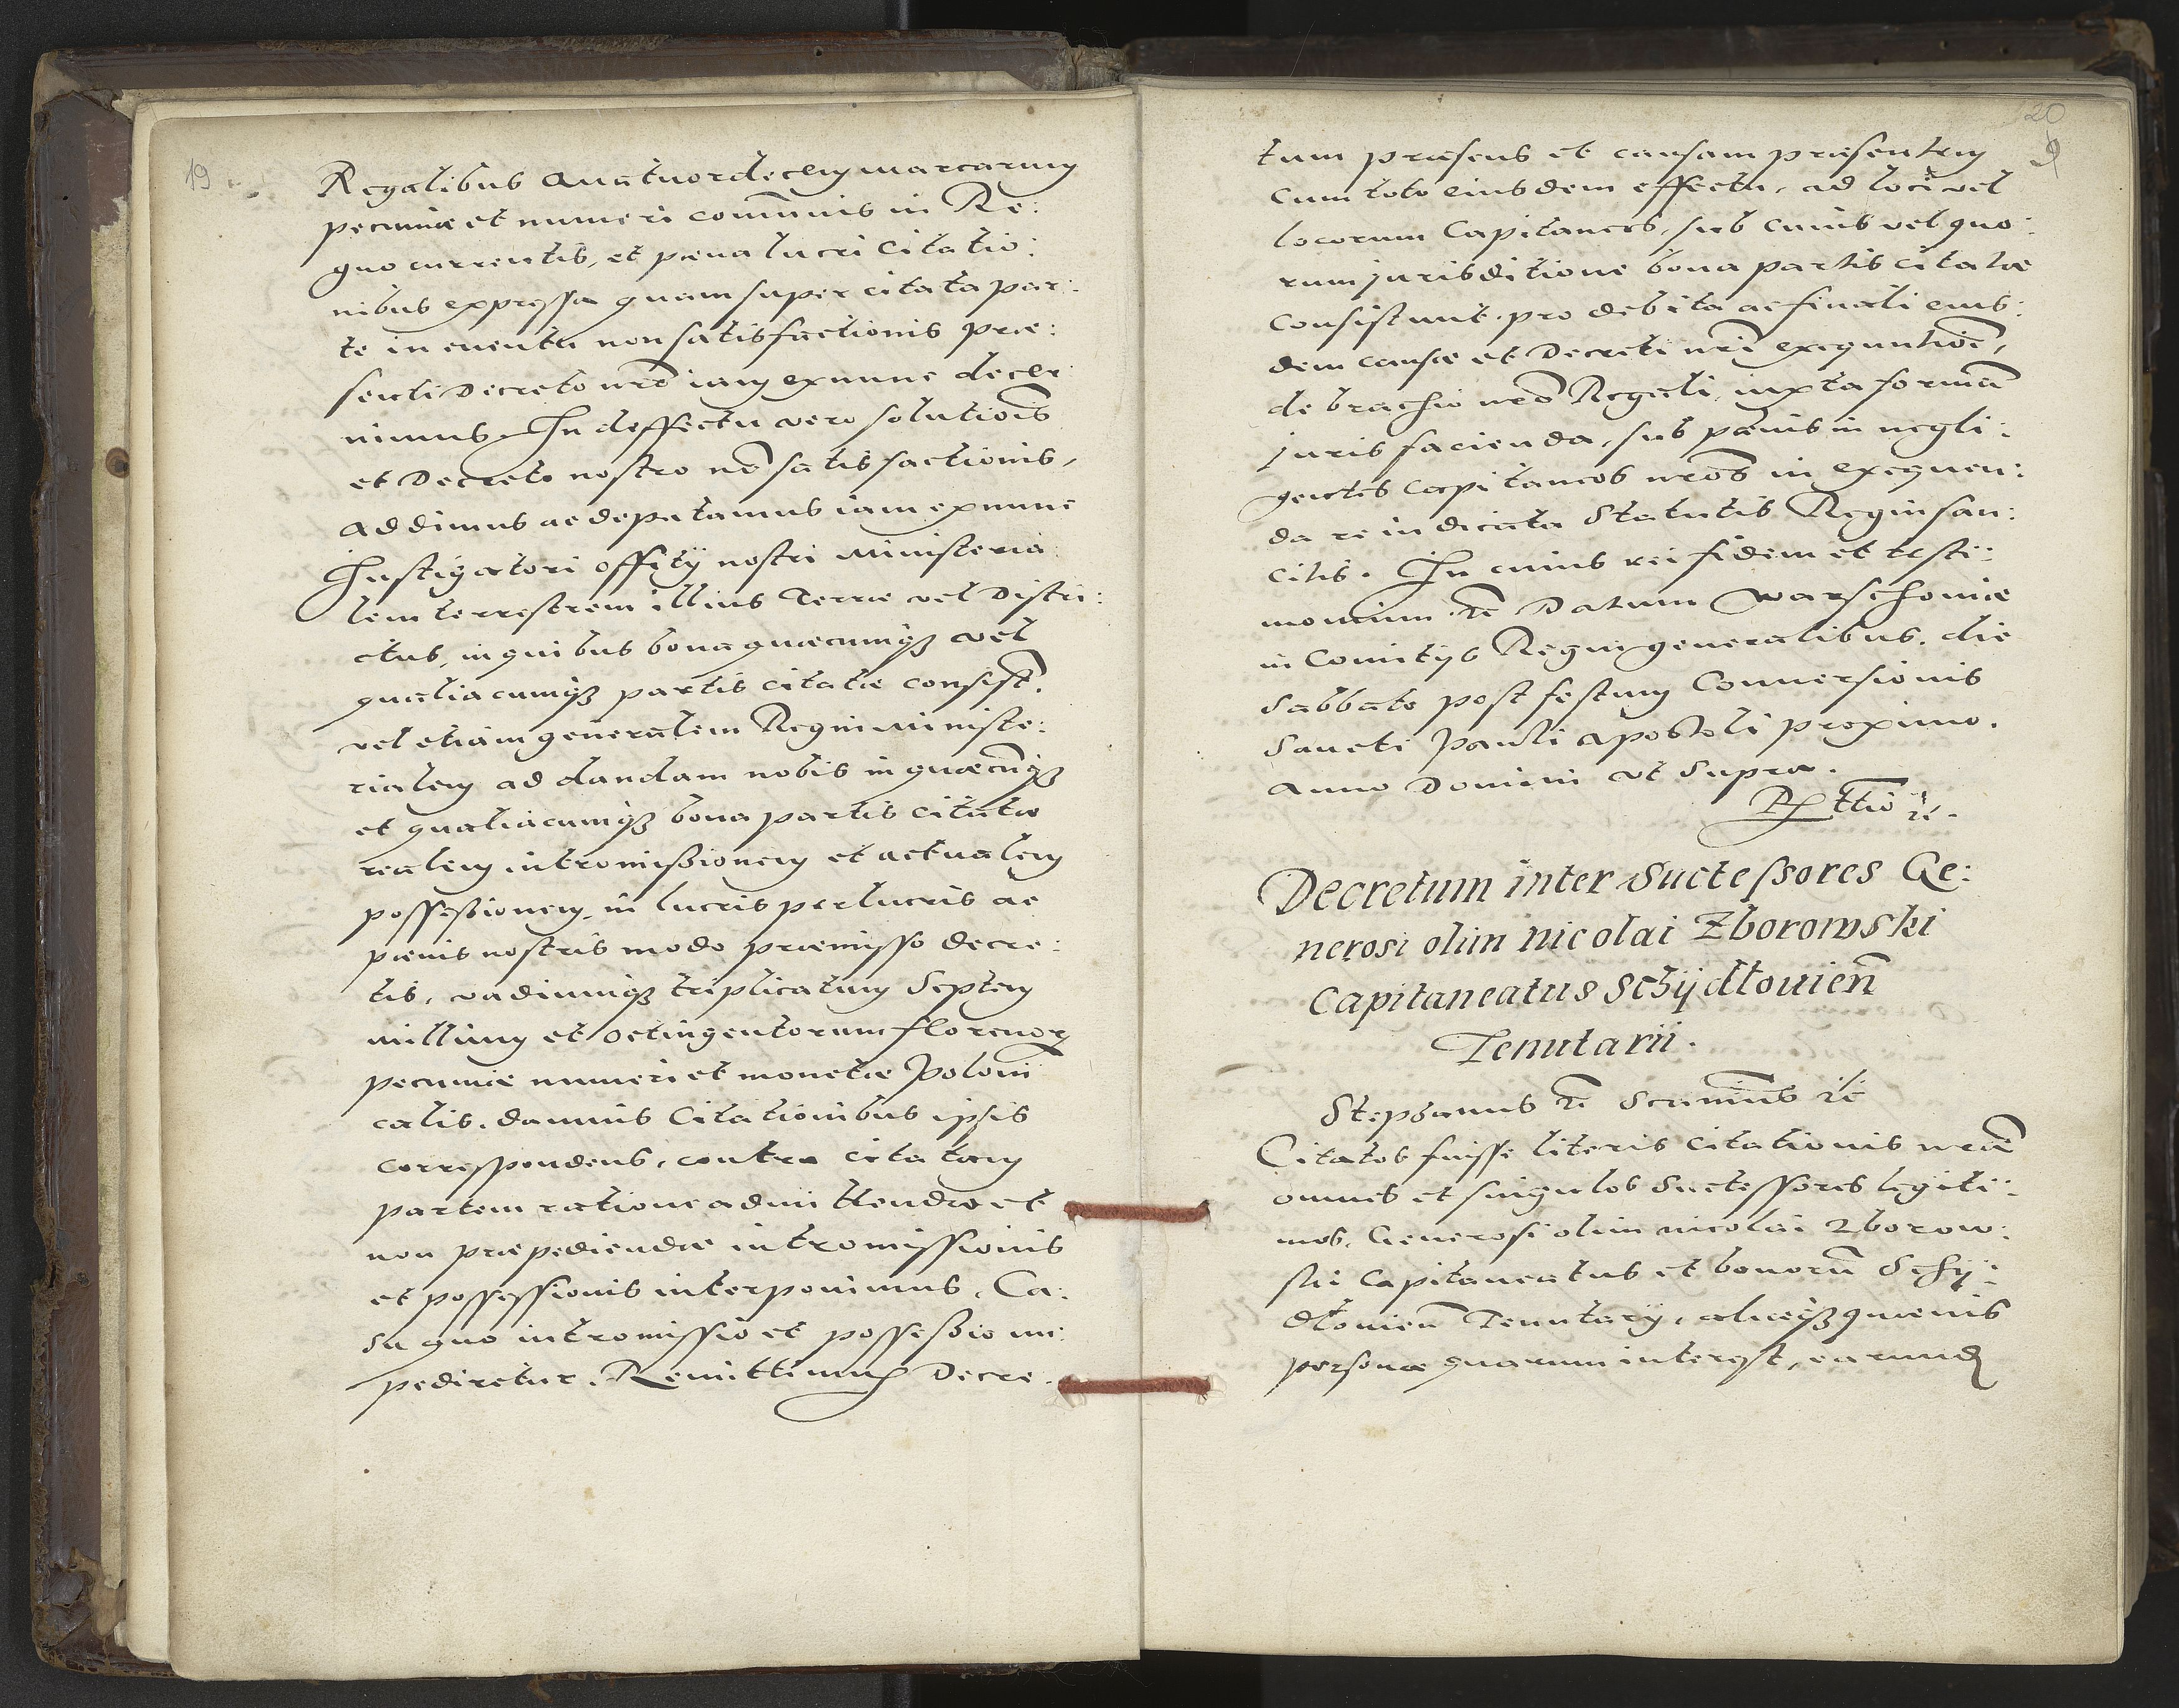 19
Regalibus Quatuordecem marcarum
pecuniæ et numeri com̄unis in Re:
gno currentis, et pœna lucri Citatio:
nibus expressa quam super citata par:
te in euentu non satisfactionis præ:
senti Decreto nr̄o iam exnunc decer:
nimus. In deffectu vero solutiōis
et Decreto nostro nō satisfactionis,
addimus ac deputamus iam exnunc
Instigatori offitÿ nostri Ministeria:
lem terrestrem illius Terræ vel Distri:
ctus, in quibus bona quæcumqꝫ vel
qualiacumqꝫ partis citatæ consist̄.
vel etiam generalem Regni Ministe:
rialem ad dandam nobis in quæcūqꝫ
et qualiacumqꝫ bona partis citatæ
realem intromißionem et actualem
possessionem, in lucris perlucris ac
pœnis nostris modo præmisso decre:
tis, vadiumqꝫ triplicatum Septem
millium et octingentorum florenoꝝ
pecuniæ numeri et monetæ Poloni
calis, damnis Citationibus ipsis
correspondens, contra citatam
partem ratione admittendæ et
non præpediendæ intromissionis
et possessionis interponimus. Ca:
su quo intromissio et possessio im:
pediretur, Remittimus Decre:
20
9
tum præsens et causam præsentem
cum toto eiusdem effectu, ad loci vel
locorum Capitaneos, sub cuius vel quo:
rum jurisditione bona partis citatæ
consistunt, pro debita ac finali eius:
dem causæ et Decreti nr̄i exequutiōe,
de brachio nr̄o Regali, iuxta formā
juris facienda, sub pœnis in negli:
gentes Capitaneos nr̄os in exequen:
da re iudicata Statutis Regni san:
citis. In cuius rei fidem et testi:
monium ꝛc̄ Datum Warschouiæ
in Comitÿs Regni generalibus, die
Sabbato post festum Conuersionis
Sancti Pauli Apostoli proximo.
Anno Domini vt Supra.
Rꝭttio ꝛc.
Decretum inter Suctessores Ge:
nerosi olim Nicolai Zborowski
Capitaneatus Schÿdlouien̄
Tenutarii.
Stephanus ꝛc̄ Scimus ꝛc̄
Citatos fuisse literis Citationis nr̄æ
omnes et singulos Suctessores legiti:
mos, Generosi olim Nicolai Zborow:
ski Capitaneatus et bonorū Schÿ:
dlouien̄ Tenutarÿ, aliasqꝫ quæuis
personæ quarum interest, earund